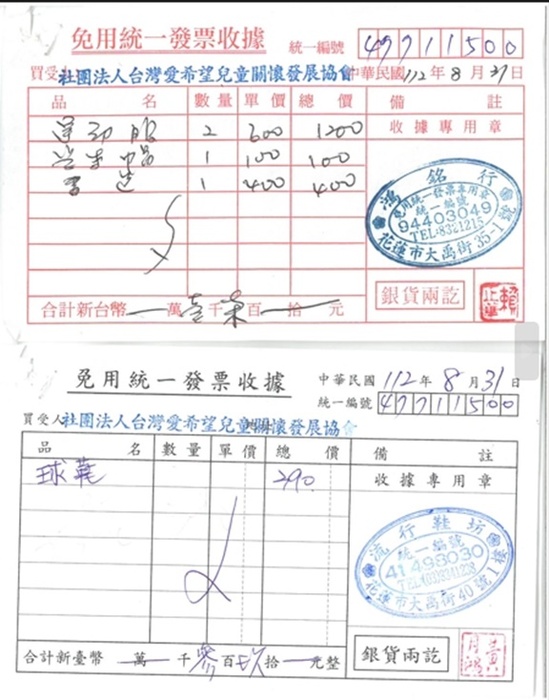 免用統一發票收據
統一編號 49711500
買受人 社團法人台灣愛希望兒童關懷發展協會 中華民國112年8月31日
品 名 數量 單價 總 價 備 註
運動服 2 600 1200 收據專用章
1 100 100
書包 1 400 400
鴻銘行
免用統一發票專用章
統一編號
94403049
TEL:8321215
花蓮市大禹街35-1號
合計新台幣 萬壹千柒百拾元
銀貨兩訖
免用統一發票收據 中華民國112年8月31日
統一編號 49711500
買受人 社團法人台灣愛希望兒童關懷發展協會
品 名 數量 單價 總 價 備 註
球鞋 290 收據專用章
流行鞋坊
統一編號
41498030
花蓮市大禹街40號1樓
合計新臺幣 萬 千 百玖拾 元整
銀貨兩訖